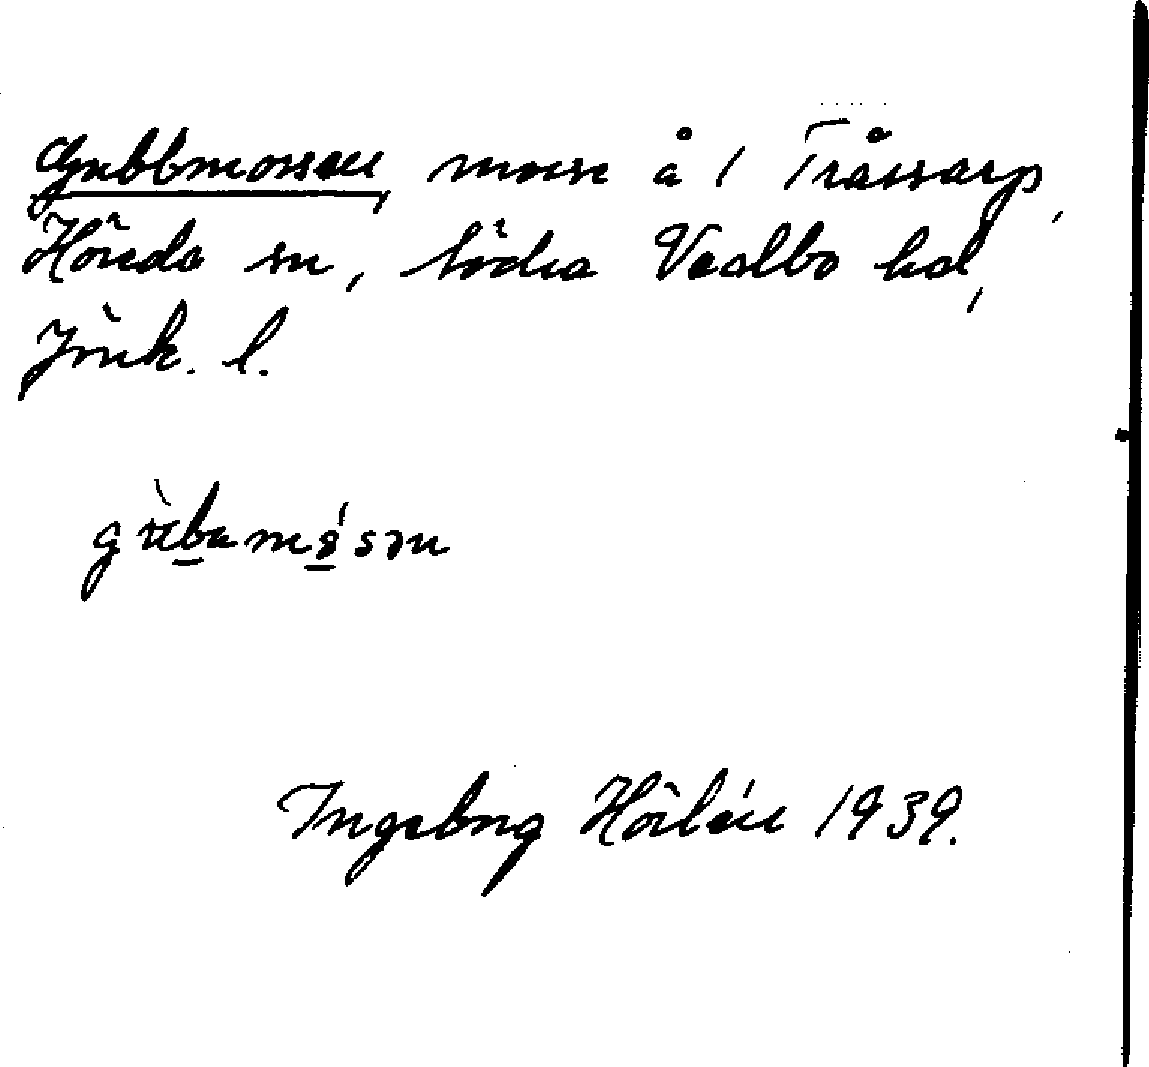 Gubbmossen, mosse å 1 Tråssarp,
Hånda sn, Södra Vadbo hd,
Jönk. l.
Ingeborg Hörlén 1939.